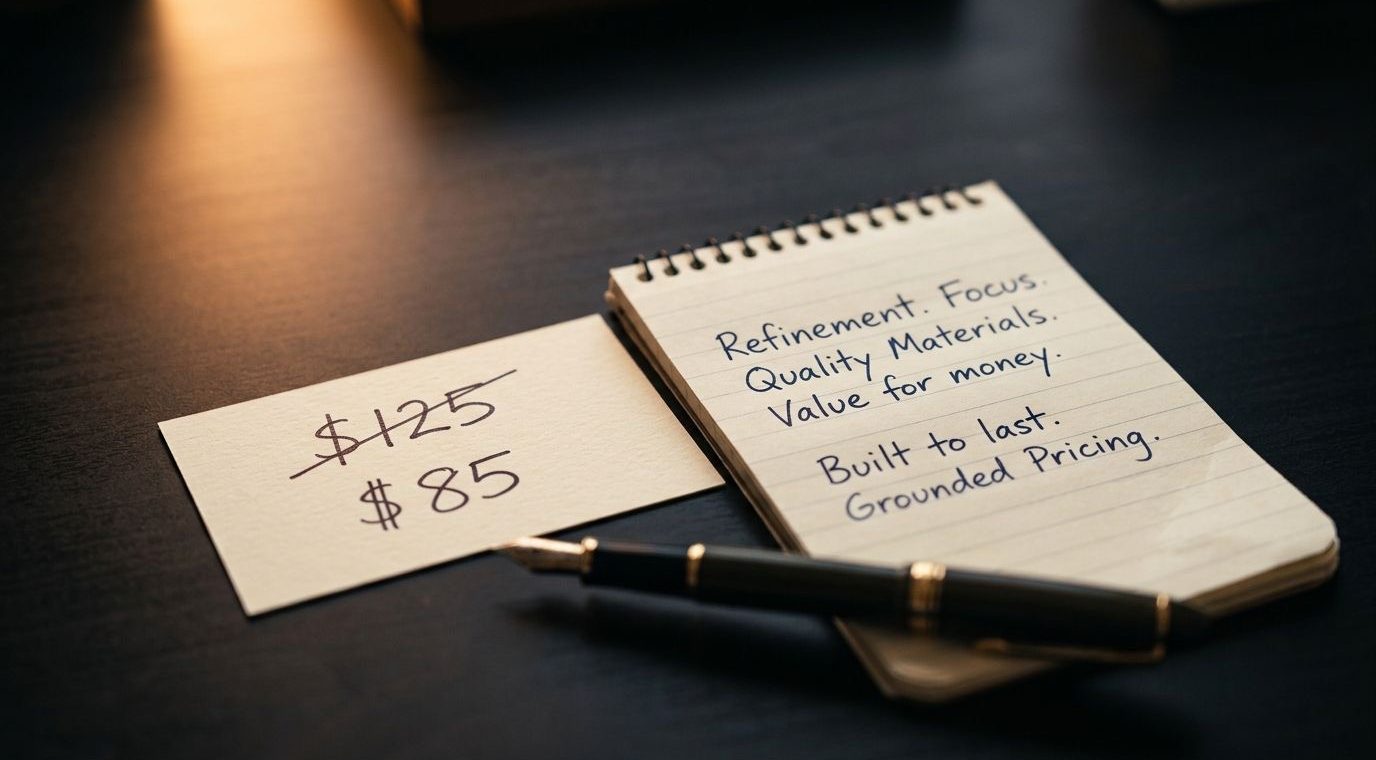 $125
$85
Refinement. Focus.
Quality Materials.
Value for money.
Built to last.
Grounded Pricing.